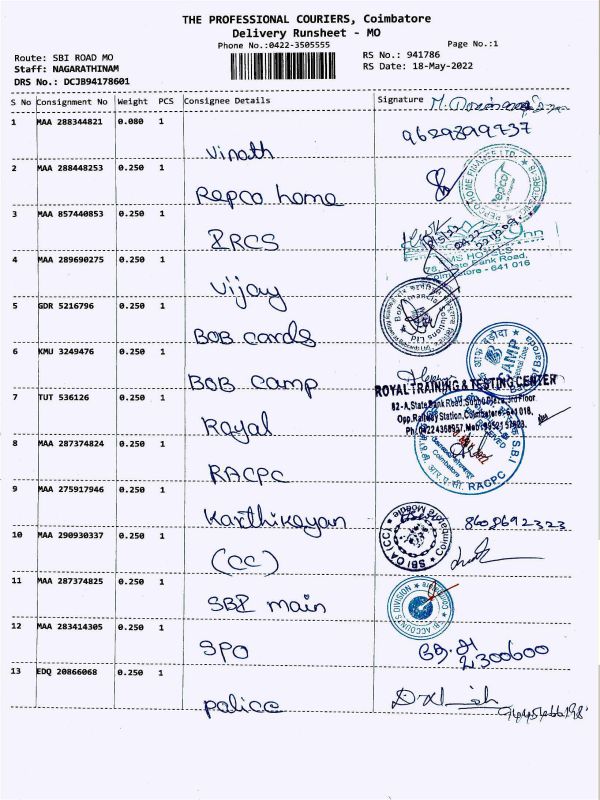 THE PROFESSIONAL COURIERS, Coimbatore
Delivery Runsheet - MO
Phone No.:0422-3505555
Page No.:1
Route: SBI ROAD MO
RS No.: 941786
Staff: NAGARATHINAM
RS Date: 18-May-2022
DRS No.: DCJB94178601
S No Consignment No Weight PCS Consignee Details Signature
1 MAA 288344821 0.080 1
9629899737
Vinoth
2 MAA 288448253 0.250 1
REPCO HOME FINANCE LTD.
Repco home
3 MAA 857440853 0.250 1
IRCS
MS HOTELS
State Bank Road,
Coimbatore - 641 016
4 MAA 289690275 0.250 1
Vijay
5 GDR 5216796 0.250 1
BOB cards
6 KMU 3249476 0.250 1
BOB camp
ROYAL TRAINING & TESTING CENTER
7 TUT 536126 0.250 1
82-A, State Bank Road, 3rd Floor
Opp. Railway Station, Coimbatore - 641 018,
Royal
8 MAA 287374824 0.250 1
SBI RACPC
RACPC
9 MAA 275917946 0.250 1
8608692323
Karthikayan
10 MAA 290930337 0.250 1
SBI OA (CC) Coimbatore
(CC)
11 MAA 287374825 0.250 1
ACCOUNTS DIVISION
SBI main
12 MAA 283414305 0.250 1
SPO
2300600
13 EDQ 20866068 0.250 1
police